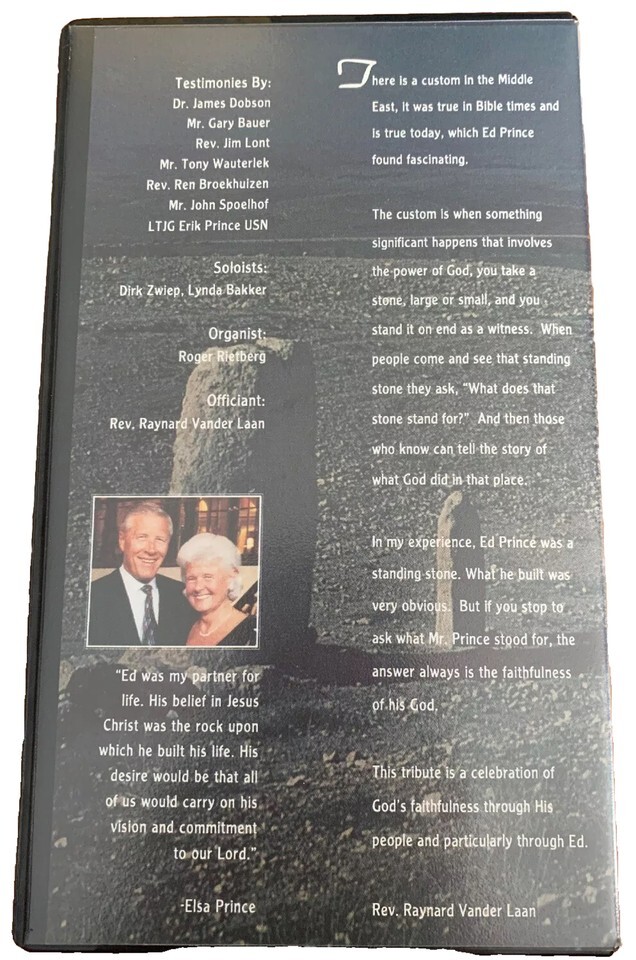 Testimonies By:
Dr. James Dobson
Mr. Gary Bauer
Rev. Jim Lont
Mr. Tony Wauterlek
Rev. Ren Broekhuizen
Mr. John Spoelhof
LTJG Erik Prince USN
Soloists:
Dirk Zwiep, Lynda Bakker
Organist:
Roger Rietberg
Officiant:
Rev. Raynard Vander Laan
"Ed was my partner for
life. His belief in Jesus
Christ was the rock upon
which he built his life. His
desire would be that all
of us would carry on his
vision and commitment
to our Lord."
-Elsa Prince
There is a custom in the Middle
East, it was true in Bible times and
is true today, which Ed Prince
found fascinating.
The custom is when something
significant happens that involves
the power of God, you take a
stone, large or small, and you
stand it on end as a witness. When
people come and see that standing
stone they ask, "What does that
stone stand for?" And then those
who know can tell the story of
what God did in that place.
In my experience, Ed Prince was a
standing stone. What he built was
very obvious. But if you stop to
ask what Mr. Prince stood for, the
answer always is the faithfulness
of his God.
This tribute is a celebration of
God's faithfulness through His
people and particularly through Ed.
Rev. Raynard Vander Laan